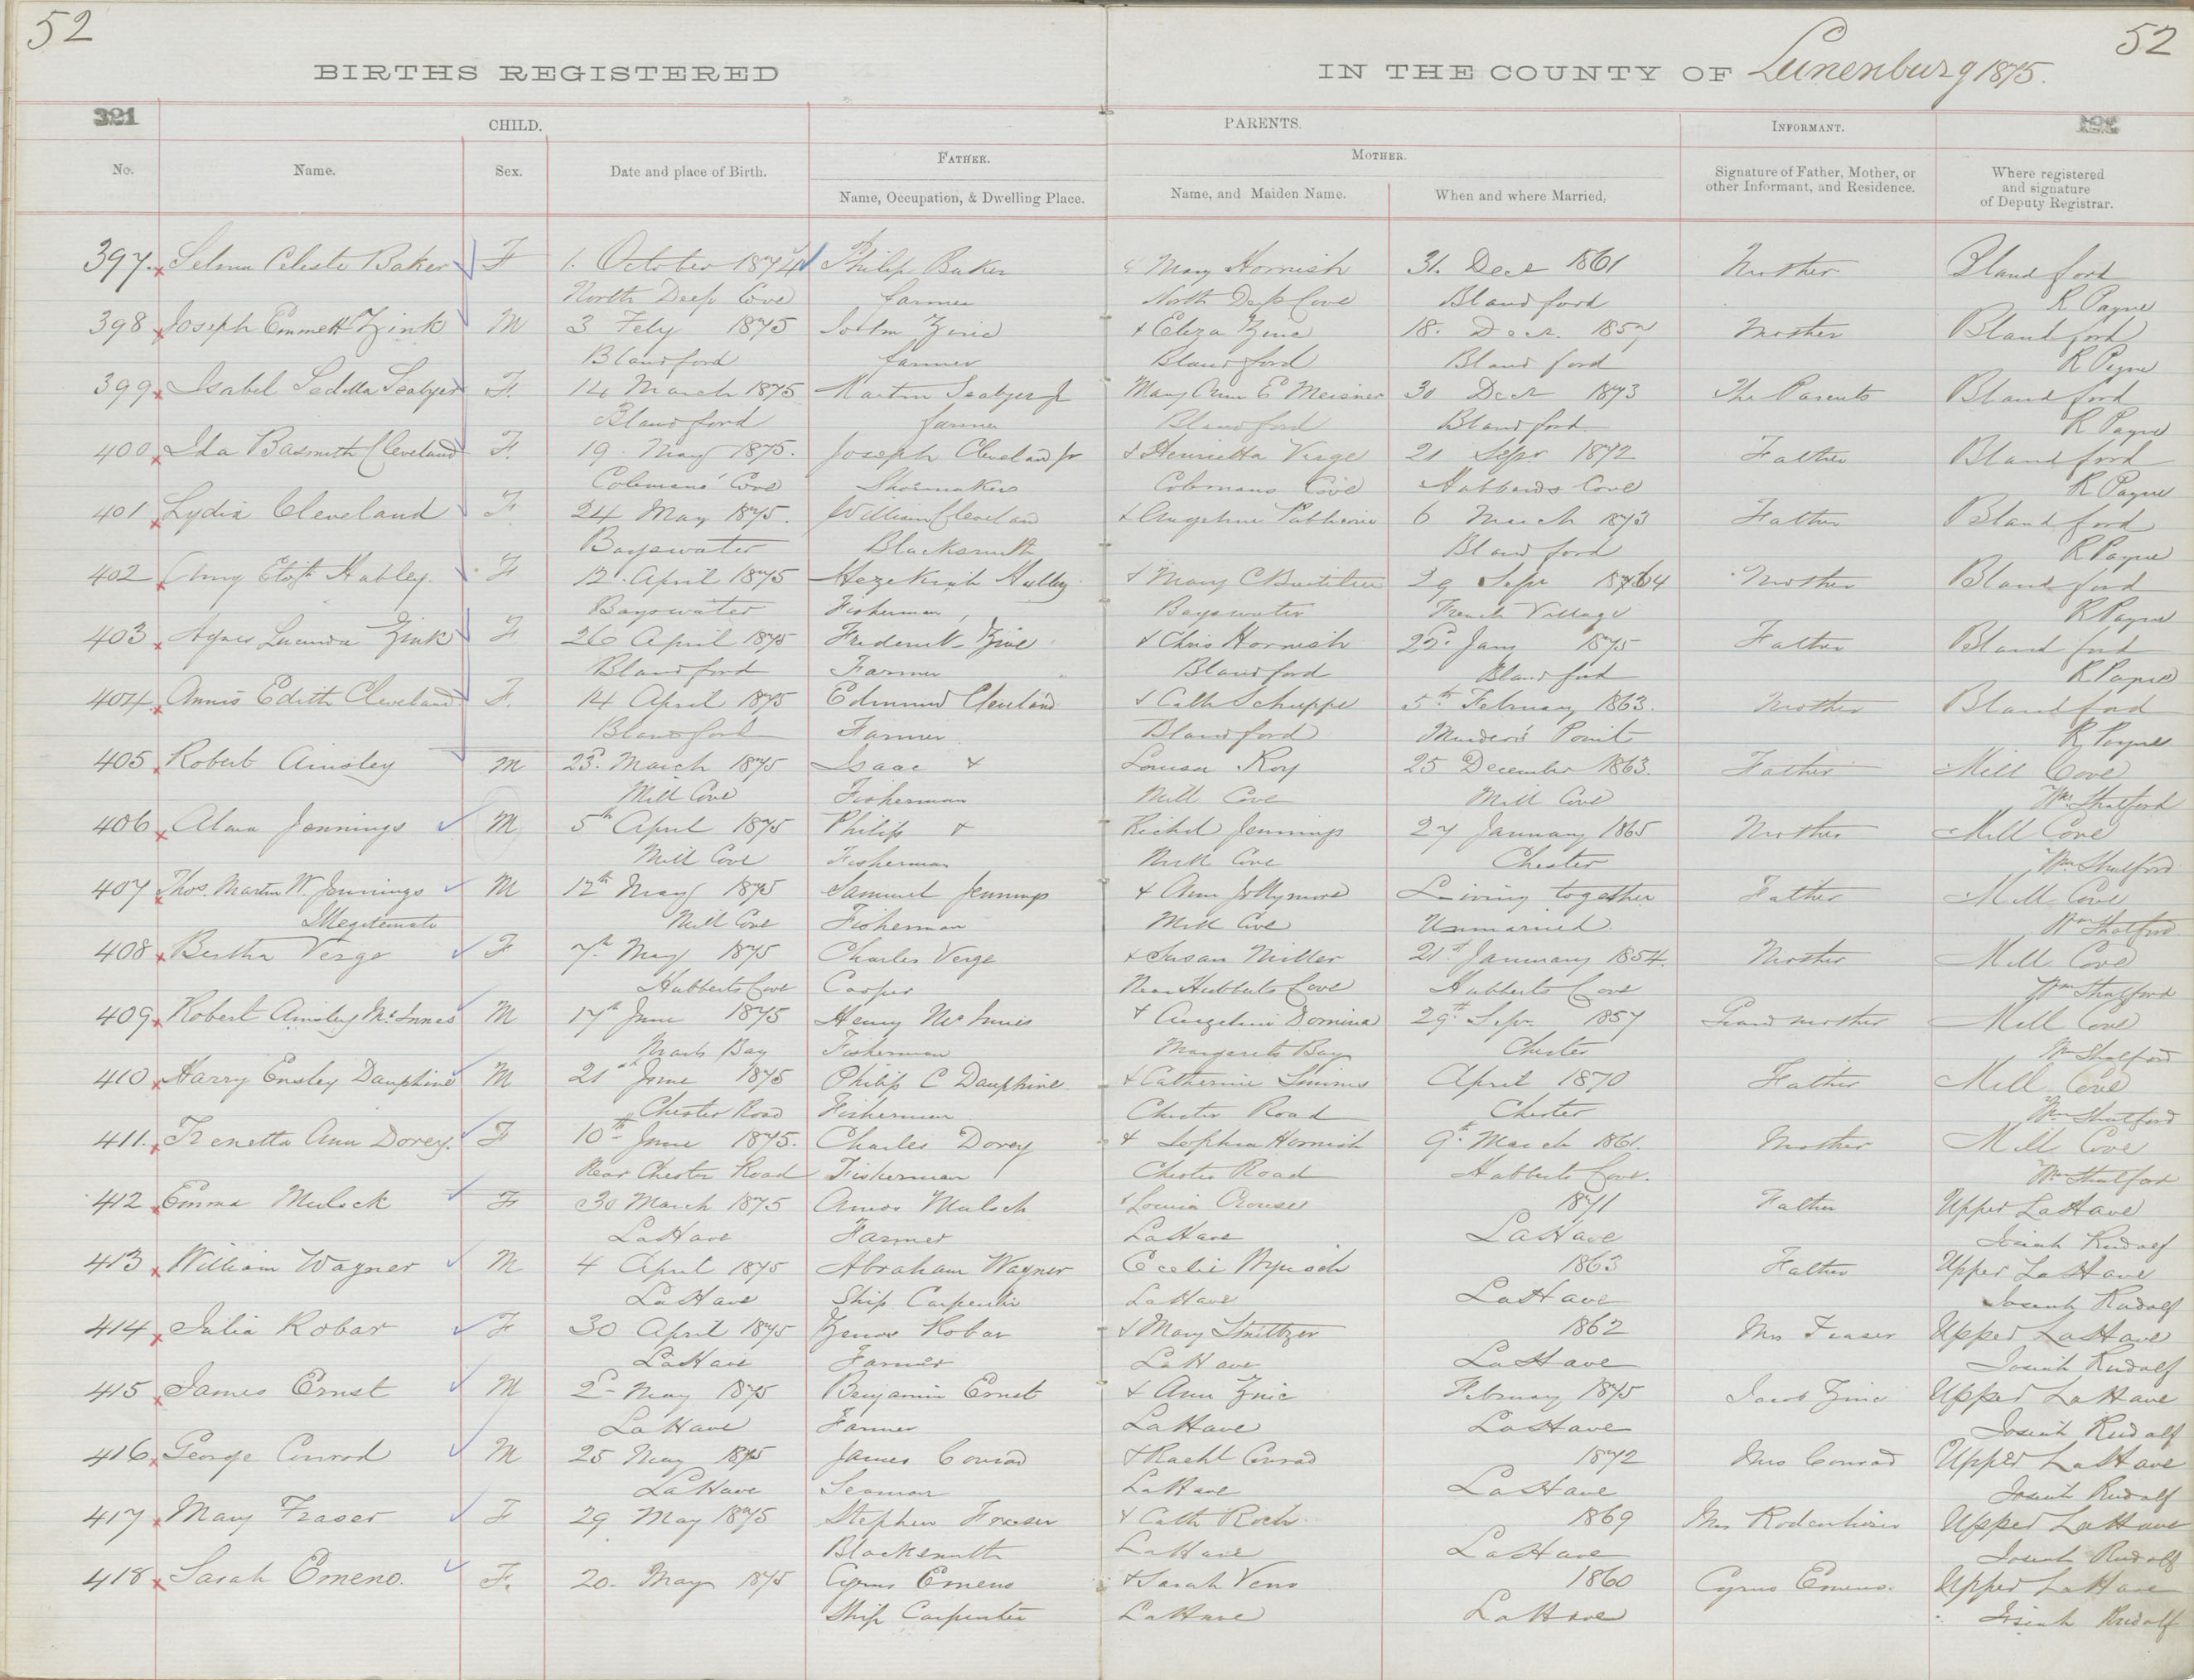 52
52
BIRTHS REGISTERED
IN THE COUNTY OF Lunenburg 1875.
321
CHILD.
PARENTS.
INFORMANT.
No.
Name.
Sex.
Date and place of Birth.
FATHER.
Name, Occupation, & Dwelling Place.
MOTHER.
Name, and Maiden Name.
When and where Married.
Signature of Father, Mother, or
other Informant, and Residence.
Where registered
and signature
of Deputy Registrar.
397. Selma Celeste Baker F 1. October 1874 Philip Baker & Mary Hornish 31. Decr 1861 Mother Blandford
North Deep Cove farmer North Deep Cove Blandford R Payne
398 Joseph Emmett Zink M 3 Feby 1875 John Zinc & Eliza Zinc 18. Decr. 1857 Mother Blandford
Blandford farmer Blandford Blandford R Payne
399 Isabel F. 14 March 1875 Martin Jr Mary Ann E Meisner 30 Decr 1873 The Parents Blandford
Blandford farmer Blandford Blandford R Payne
400 Ida Cleveland F. 19. May 1875. Joseph Cleveland Jr & Henrietta Verge 21 Sepr 1872 Father Blandford
Colemans' Cove Shoemaker Colemans Cove Hubbards Cove R Payne
401 Lydia Cleveland F 24 May 1875. William Cleveland & Angeline 6 March 1873 Father Blandford
Bayswater Blacksmith Blandford R Payne
402 Amy Elizth Hubley. F 12. April 1875 Hezekiah Hubley & Mary C 29 Sepr Mother Blandford
Bayswater Fisherman Bayswater French Village R Payne
403 Agnes Lucinda Zink F 26 April 1875 Frederick Zinc & Chris Hornish Jany 1875 Father Blandford
Blandford Farmer Blandford Blandford R Payne
404 Annis Edith Cleveland F. 14 April 1875 Edmund Cleveland & Cath Schuppe 5th February 1863. Mother Blandford
Blandford Farmer Blandford Murder's Point R Payne
405 Robert Ainsley M 23d March 1875 Isaac & Louisa Roy 25 December 1863. Father Mill Cove
Mill Cove Fisherman Mill Cove Mill Cove Wm Shatford
406 Alma Jennings M 5th April 1875 Philip & Jennings 27 January 1865 Mother Mill Cove
Mill Cove Fisherman Mill Cove Chester Wm Shatford
407 Thos. Martin W. Jennings M 12th May 1875 Samuel Jennings & Ann Jollymore Living together Father Mill Cove
Illegitimate Mill Cove Fisherman Mill Cove Unmarried. Wm Shatford
408 Bertha Verge F 7th May 1875 Charles Verge & Susan Miller 21st January 1854. Mother Mill Cove
Hubberts Cove Cooper Near Hubberts Cove Hubberts Cove Wm Shatford
409 Robert Ainsley McInnes M 17th June 1875 Henry McInnis & Angeline Domina 29th Sepr. 1857 Grand mother Mill Cove
Bay Fisherman Margarets Bay Chester Wm Shatford
410 Harry Ensley Dauphine M 21st June 1875 Philip C Dauphine & Catherine April 1870 Father Mill Cove
Chester Road Fisherman Chester Road Chester Wm Shatford
411. Ann Dorey. F 10th June 1875. Charles Dorey & Sophia Hornish 9th March 1861. Mother Mill Cove
Near Chester Road Fisherman Chester Road Hubberts Cove. Wm Shatford
412 Emma Mulock F 30 March 1875 Amos Mulock & Louisa Crouse 1871 Father Upper LaHave
LaHave Farmer LaHave LaHave Josiah Rudolf
413 William Wagner M 4 April 1875 Abraham Wagner 1863 Father Upper LaHave
LaHave Ship Carpenter LaHave LaHave Josiah Rudolf
414 Julia Robar F 30 April 1875 Robar & Mary 1862 Mrs Fraser Upper LaHave
LaHave Farmer LaHave LaHave Josiah Rudolf
415 James Ernst M 2d May 1875 Benjamin Ernst & Ann Zinc February 1875 Jacob Zinc Upper LaHave
LaHave Farmer LaHave LaHave Josiah Rudolf
416 George Conrod M 25 May 1875 James Conrad & Rachl Conrad 1872 Mrs Conrad Upper LaHave
LaHave Seaman LaHave LaHave Josiah Rudolf
417 Mary Fraser F 29 May 1875 Stephen Fraser & Cath Roch 1869 Mrs Rodenhiser Upper LaHave
Blacksmith LaHave LaHave Josiah Rudolf
418 Sarah Emeno. F. 20. May 1875 Cyrus Emeno & Sarah Veno 1860 Cyrus Emeno. Upper LaHave
Ship Carpenter LaHave LaHave Josiah Rudolf